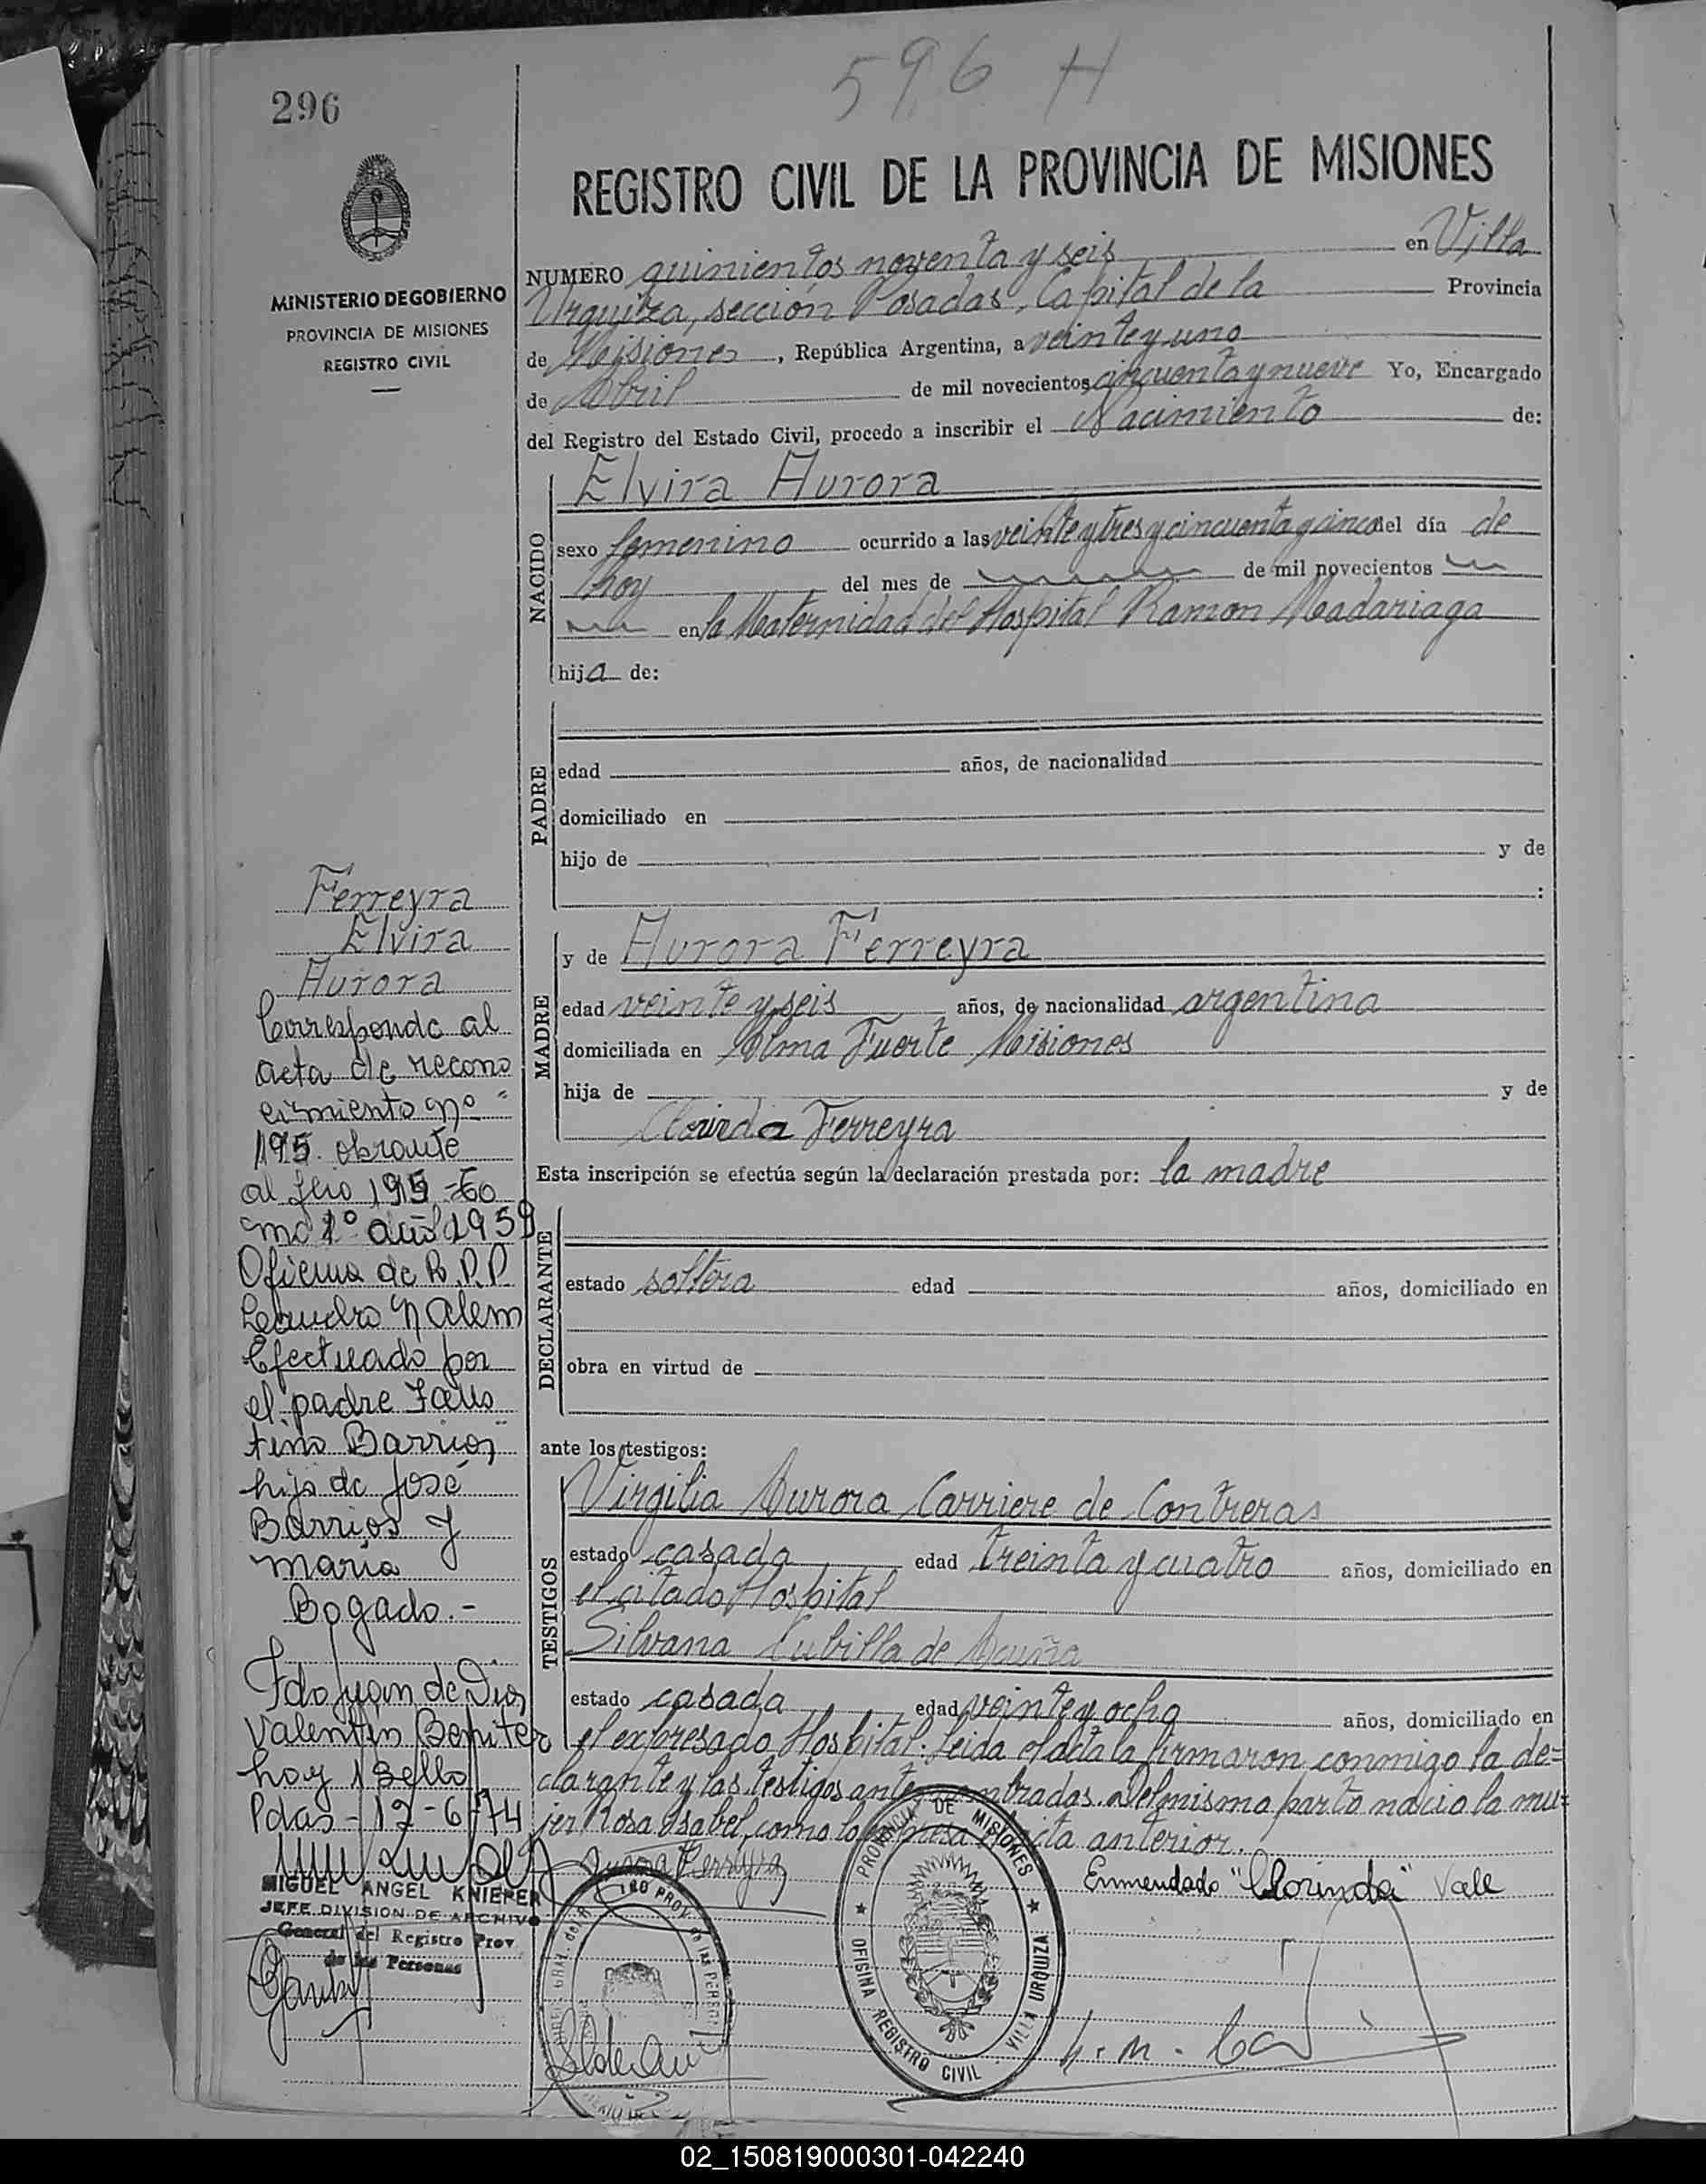 596 H
296
REGISTRO CIVIL DE LA PROVINCIA DE MISIONES
MINISTERIO DE GOBIERNO
PROVINCIA DE MISIONES
REGISTRO CIVIL
NUMERO quinientos noventa y seis en Villa
Urquiza, sección Posadas, Capital de la Provincia
de Misiones, República Argentina, a veinte y uno
de Abril de mil novecientos cincuenta y nueve Yo, Encargado
del Registro del Estado Civil, procedo a inscribir el Nacimiento de:
NACIDO
Elvira Aurora
sexo femenino ocurrido a las veinte y tres y cincuenta y cinco del día de
hoy del mes de de mil novecientos
en la Maternidad del Hospital Ramon Madariaga
hija de:
PADRE
edad años, de nacionalidad
domiciliado en
hijo de y de
:
MADRE
y de Aurora Ferreyra
edad veinte y seis años, de nacionalidad argentina
domiciliada en Alma Fuerte Misiones
hija de y de
Clorinda Ferreyra
Esta inscripción se efectúa según la declaración prestada por: la madre
DECLARANTE
estado soltera edad años, domiciliado en
obra en virtud de
ante los testigos:
TESTIGOS
Virgilia Aurora Carriere de Contreras
estado casada edad treinta y cuatro años, domiciliado en
el citado Hospital
Silvana Cubilla de Acuña
estado casada edad veinte y ocho años, domiciliado en
el expresado Hospital. Leida el acta la firmaron conmigo la de=
clarante y las testigos antes nombradas. Del mismo parto nacio la mu=
jer Rosa Isabel, como lo expresa el acta anterior.
Aurora Ferreyra
Enmendado "Clorinda" Vale
Ferreyra
Elvira
Aurora
Corresponde al
acta de recono
cimiento nº
195 obrante
al folio 195 =
mo 1º año 1959
Oficina de R.P.P
Leandro N Alem
Efectuado por
el padre Faus
tino Barrios,
hijo de José
Barrios y
maria
Bogado.-
Fdo Juan de Dios
Valentin Benitez
hay 1 Sello
Pdas - 12-6-74
MIGUEL ANGEL KNIEPER
JEFE DIVISION DE ARCHIVO
General del Registro Prov
de las Personas
PROVINCIA DE MISIONES
OFICINA REGISTRO CIVIL VILLA URQUIZA
02_150819000301-042240